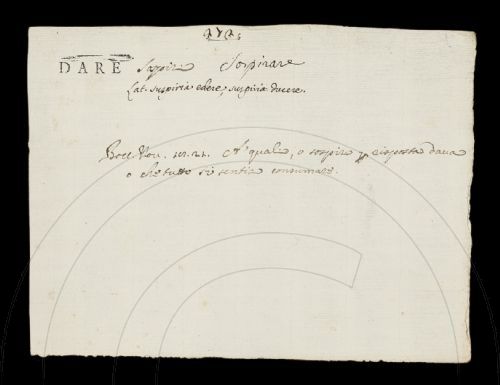 DARE Sospiri Sospirare
Lat. suspiria edere, suspiria ducere.
Bocc. Nov. al quale, o sospiri per risposta dava
o che tutto si sentia consumare.